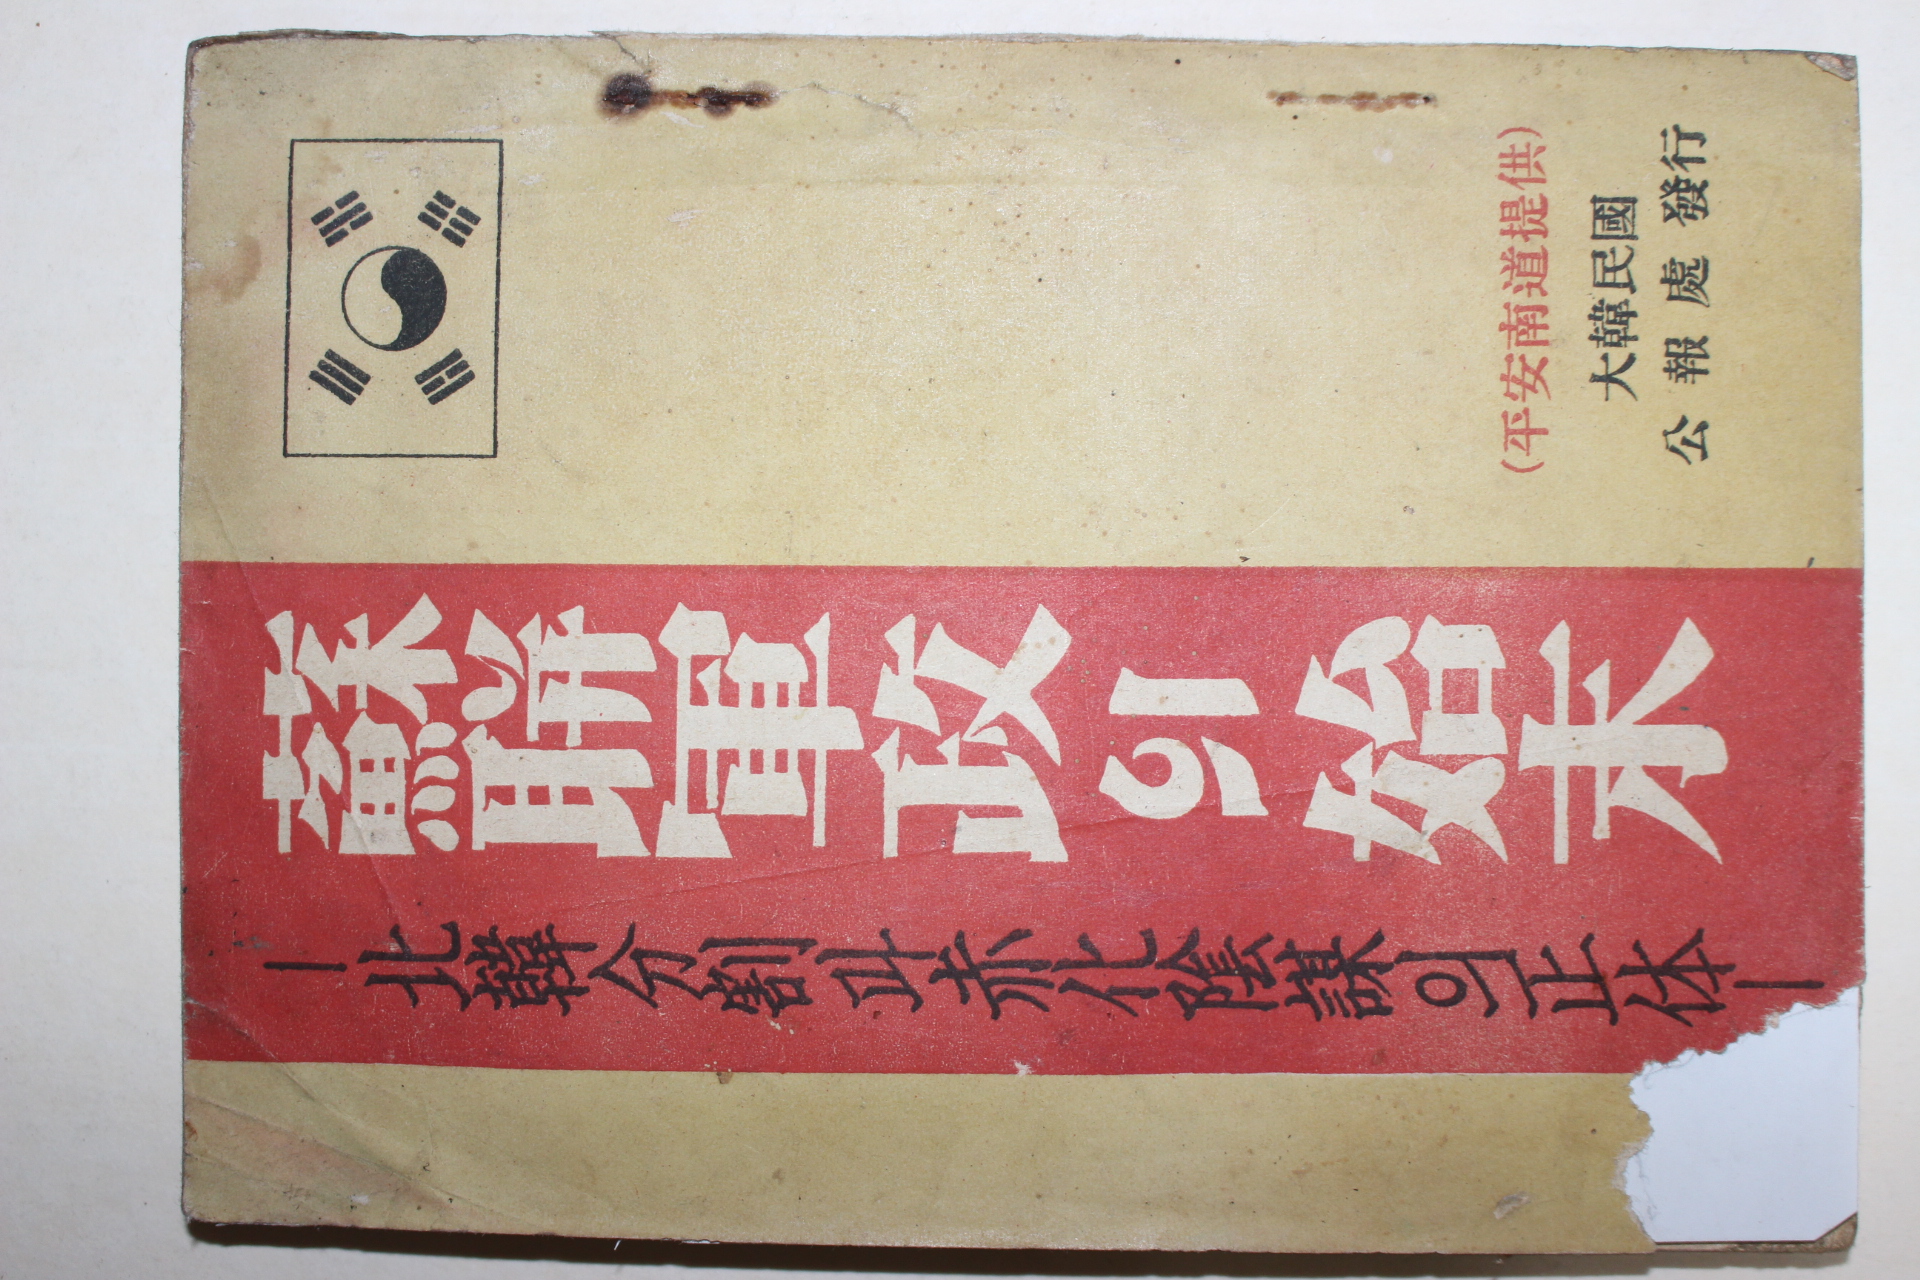 蘇聯軍政의 始末
—北韓分割과 赤化陰謀의 正体—
(平安南道提供)
大韓民國
公報處 發行